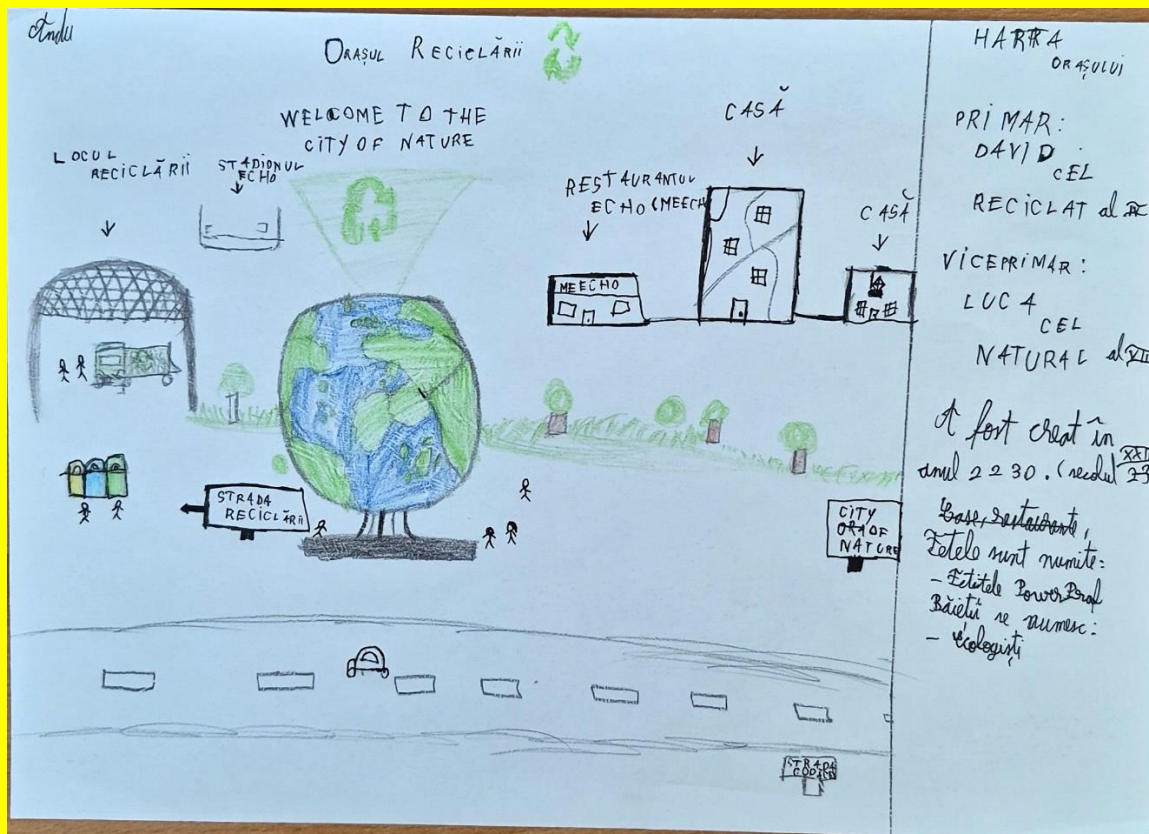 Andu
ORAȘUL RECICLĂRII
WELCOME TO THE
CITY OF NATURE
LOCUL
RECICLĂRII
STADIONUL
ECHO
RESTAURANTUL
ECHO (MEECH
CASĂ
CASĂ
MEECHO
STRADA
RECICLĂRII
CITY
ORA OF
NATURE
STRADA
HARTA
ORAȘULUI
PRIMAR:
DAVID
CEL
RECICLAT al
VICEPRIMAR:
LUCA
CEL
NATURAL al
A fost creat în
anul 2230. (secolul
Case, restaurante,
Fetele sunt numite:
- Fetitele PowerPraf
Băieții se numesc:
- Ecologiști